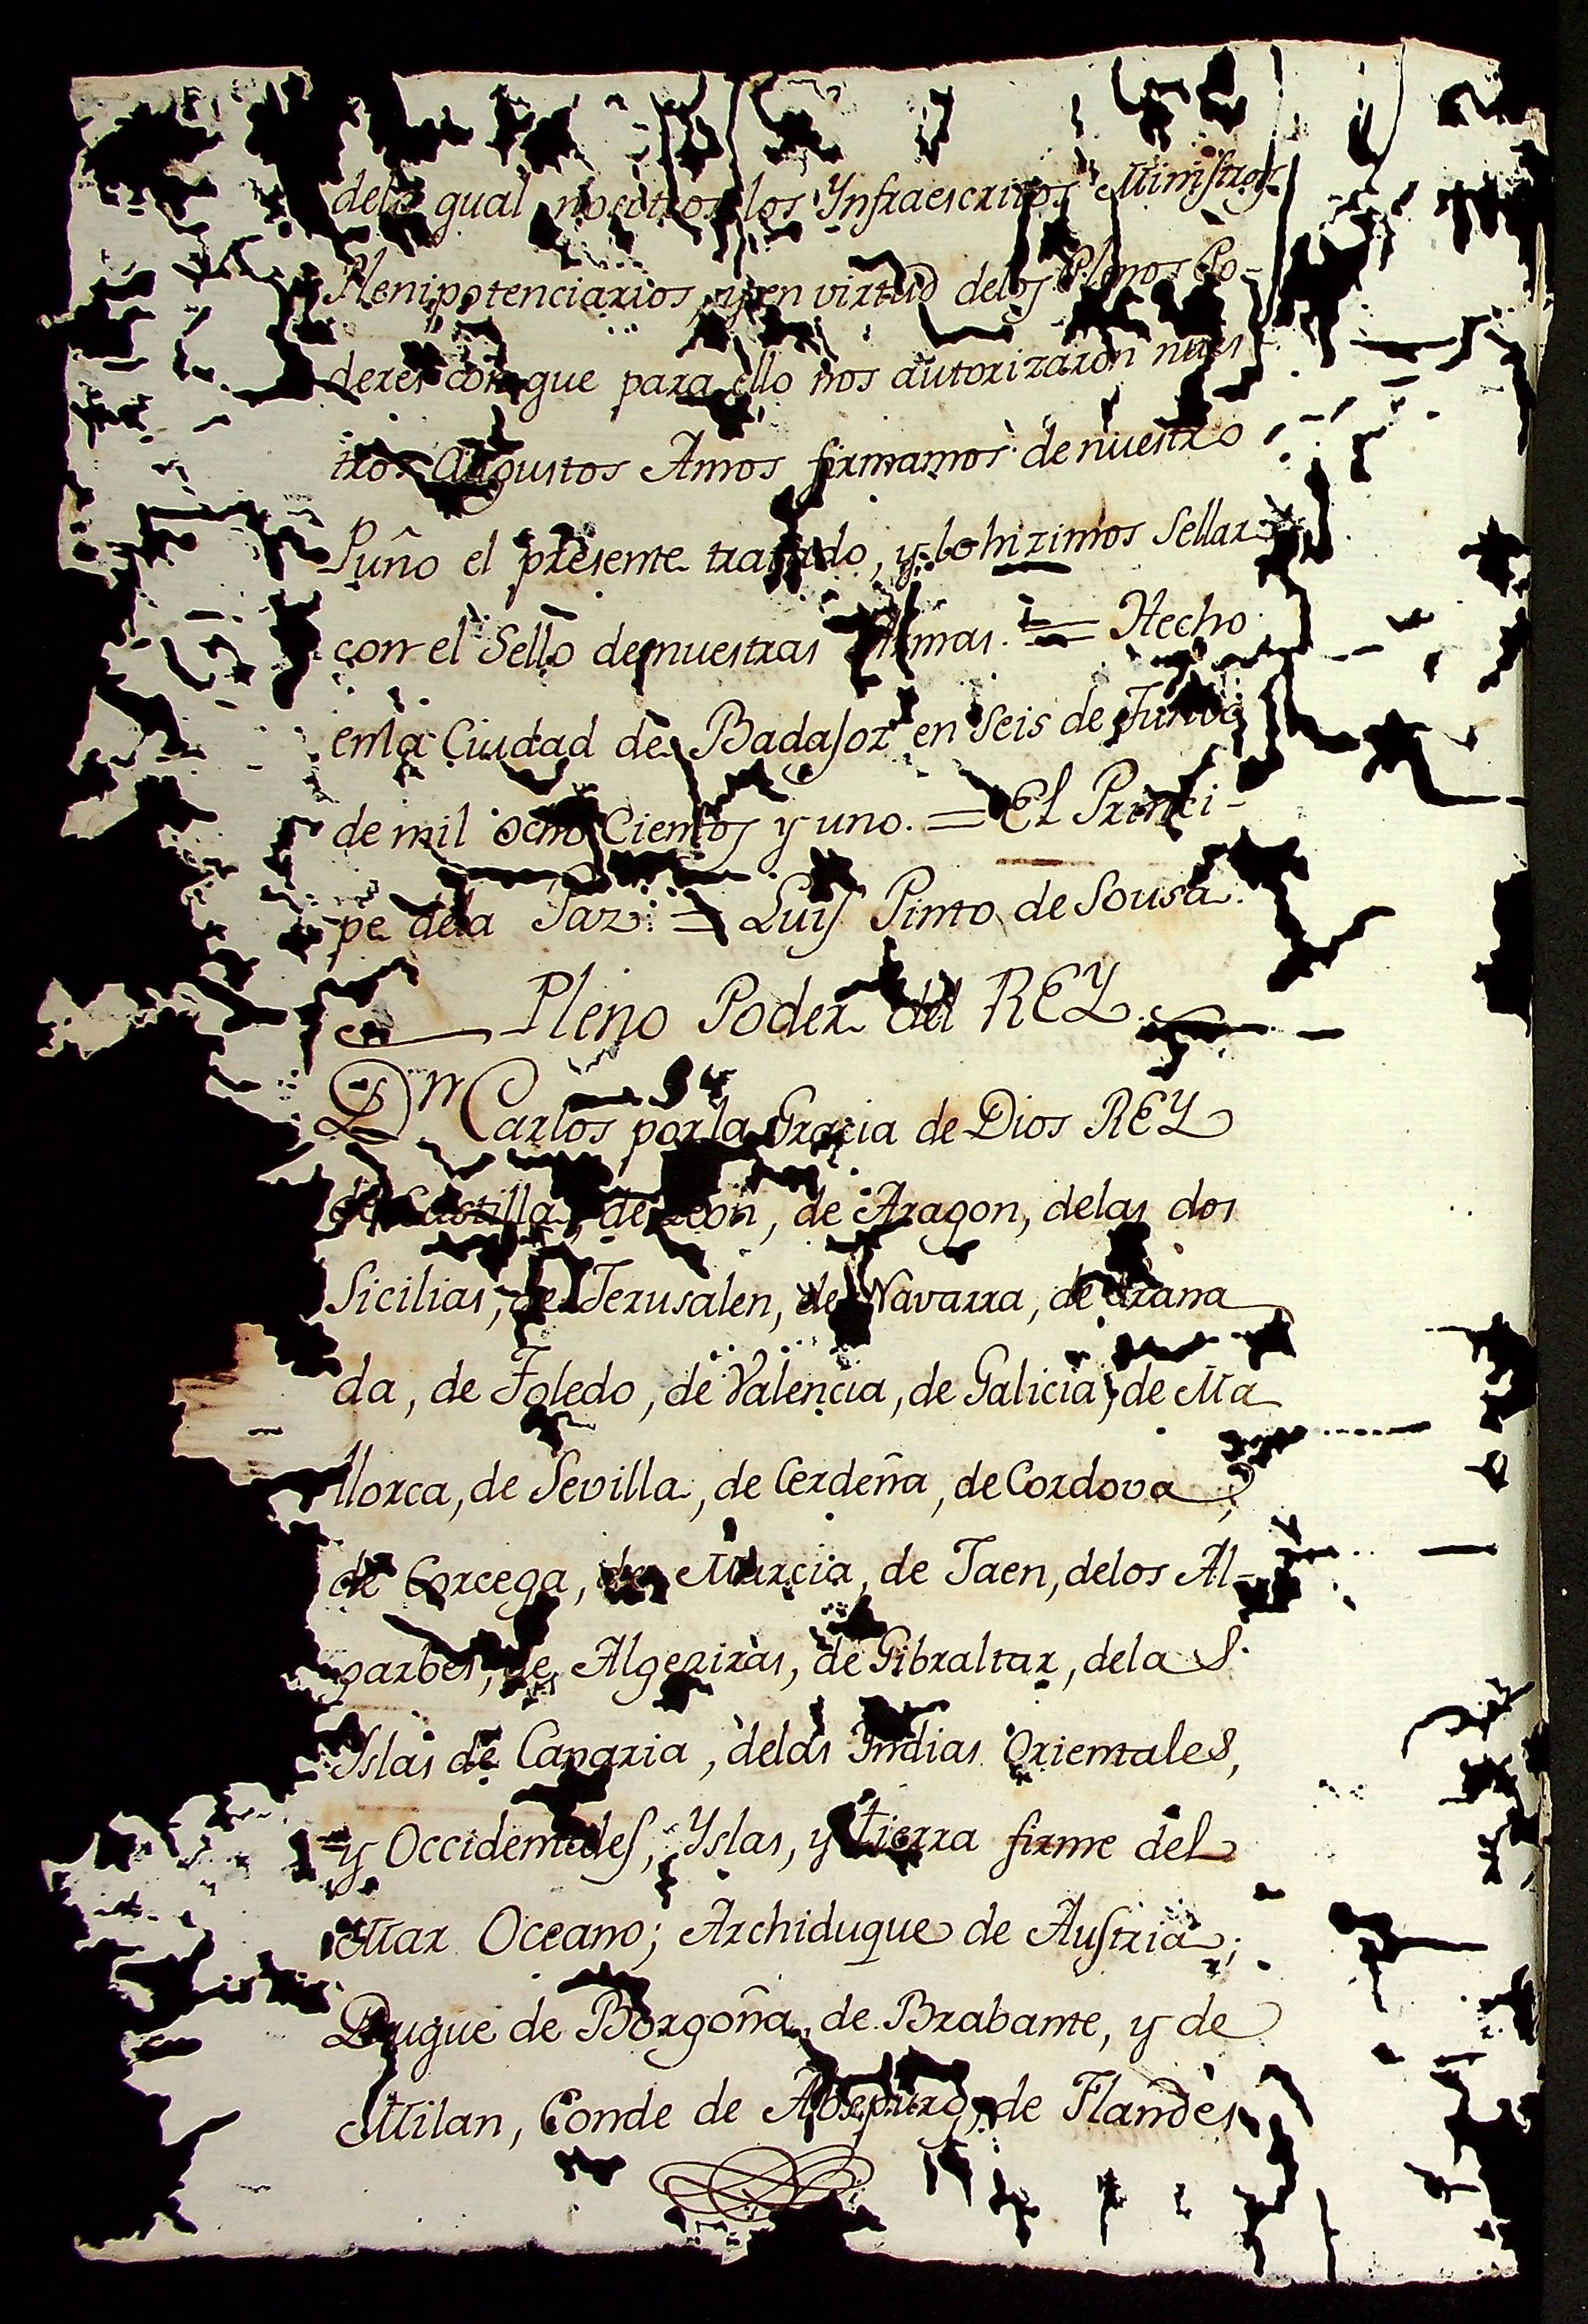 dela qual nosotros los Ynfraescritos Ministros
Plenipotenciarios, y en virtud delos Plenos Po-
deres con que para ello nos autorizaron nues-
tros Augustos Amos firmamos de nuestro
Puño el presente tratado, y lo hizimos Sellar
con el Sello de nuestras Armas. = Hecho
enla Ciudad de Badajoz en Seis de Junio
de mil ocho Cientos y uno. = El Princi-
pe dela Paz: = Luis Pinto de Sousa.
Pleno Poder del REY.
Dn Carlos por la Gracia de Dios REY
de Castilla, de Leon, de Aragon, delas dos
Sicilias, de Jerusalen, de Navarra, de Grana
da, de Toledo, de Valencia, de Galicia, de Ma
llorca, de Sevilla, de Cerdeña, de Cordova,
de Corcega, de Murcia, de Jaen, delos Al-
garbes, de Algeziras, de Gibraltar, dela S.
Yslas de Canaria, delas Yndias Orientales,
y Occidentales, Yslas, y tierra firme del
Mar Oceano; Archiduque de Austria;
Duque de Borgoña, de Brabante, y de
Milan, Conde de Abspurg, de Flandes